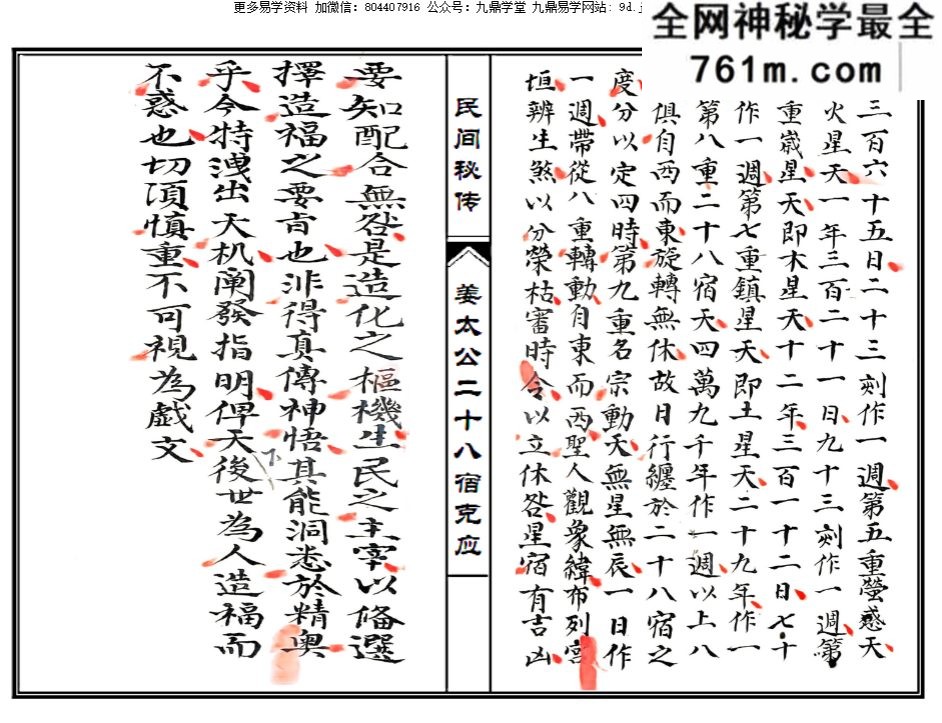 更多易学资料 加微信：804407916 公众号：九鼎学堂 九鼎易学网站: 9d.
全网神秘学最全
761m.com
三百六十五日二十三刻作一週第五重螢惑天
火星天一年三百二十一日九十三刻作一週第
重嵗星天即木星天十二年三百一十二日七十
作一週第七重鎮星天即土星天二十九年作一
第八重二十八宿天四萬九千年作一週以上八
俱自西而東旋轉無休故日行纏於二十八宿之
度分以定四時第九重名宗動天無星無辰一日作
一週帶從八重轉動自東而西聖人觀象緯布列宮
垣辨生煞以分榮枯審時令以立休咎星宿有吉凶
民间秘传
姜太公二十八宿克应
要知配合無咎是造化之樞機生民之主宰以俻選
擇造福之要旨也非得真傳神悟其能洞悉於精奧
乎今特洩出天机阐發指明俾天下後世為人造福而
不惑也切須慎重不可視為戲文